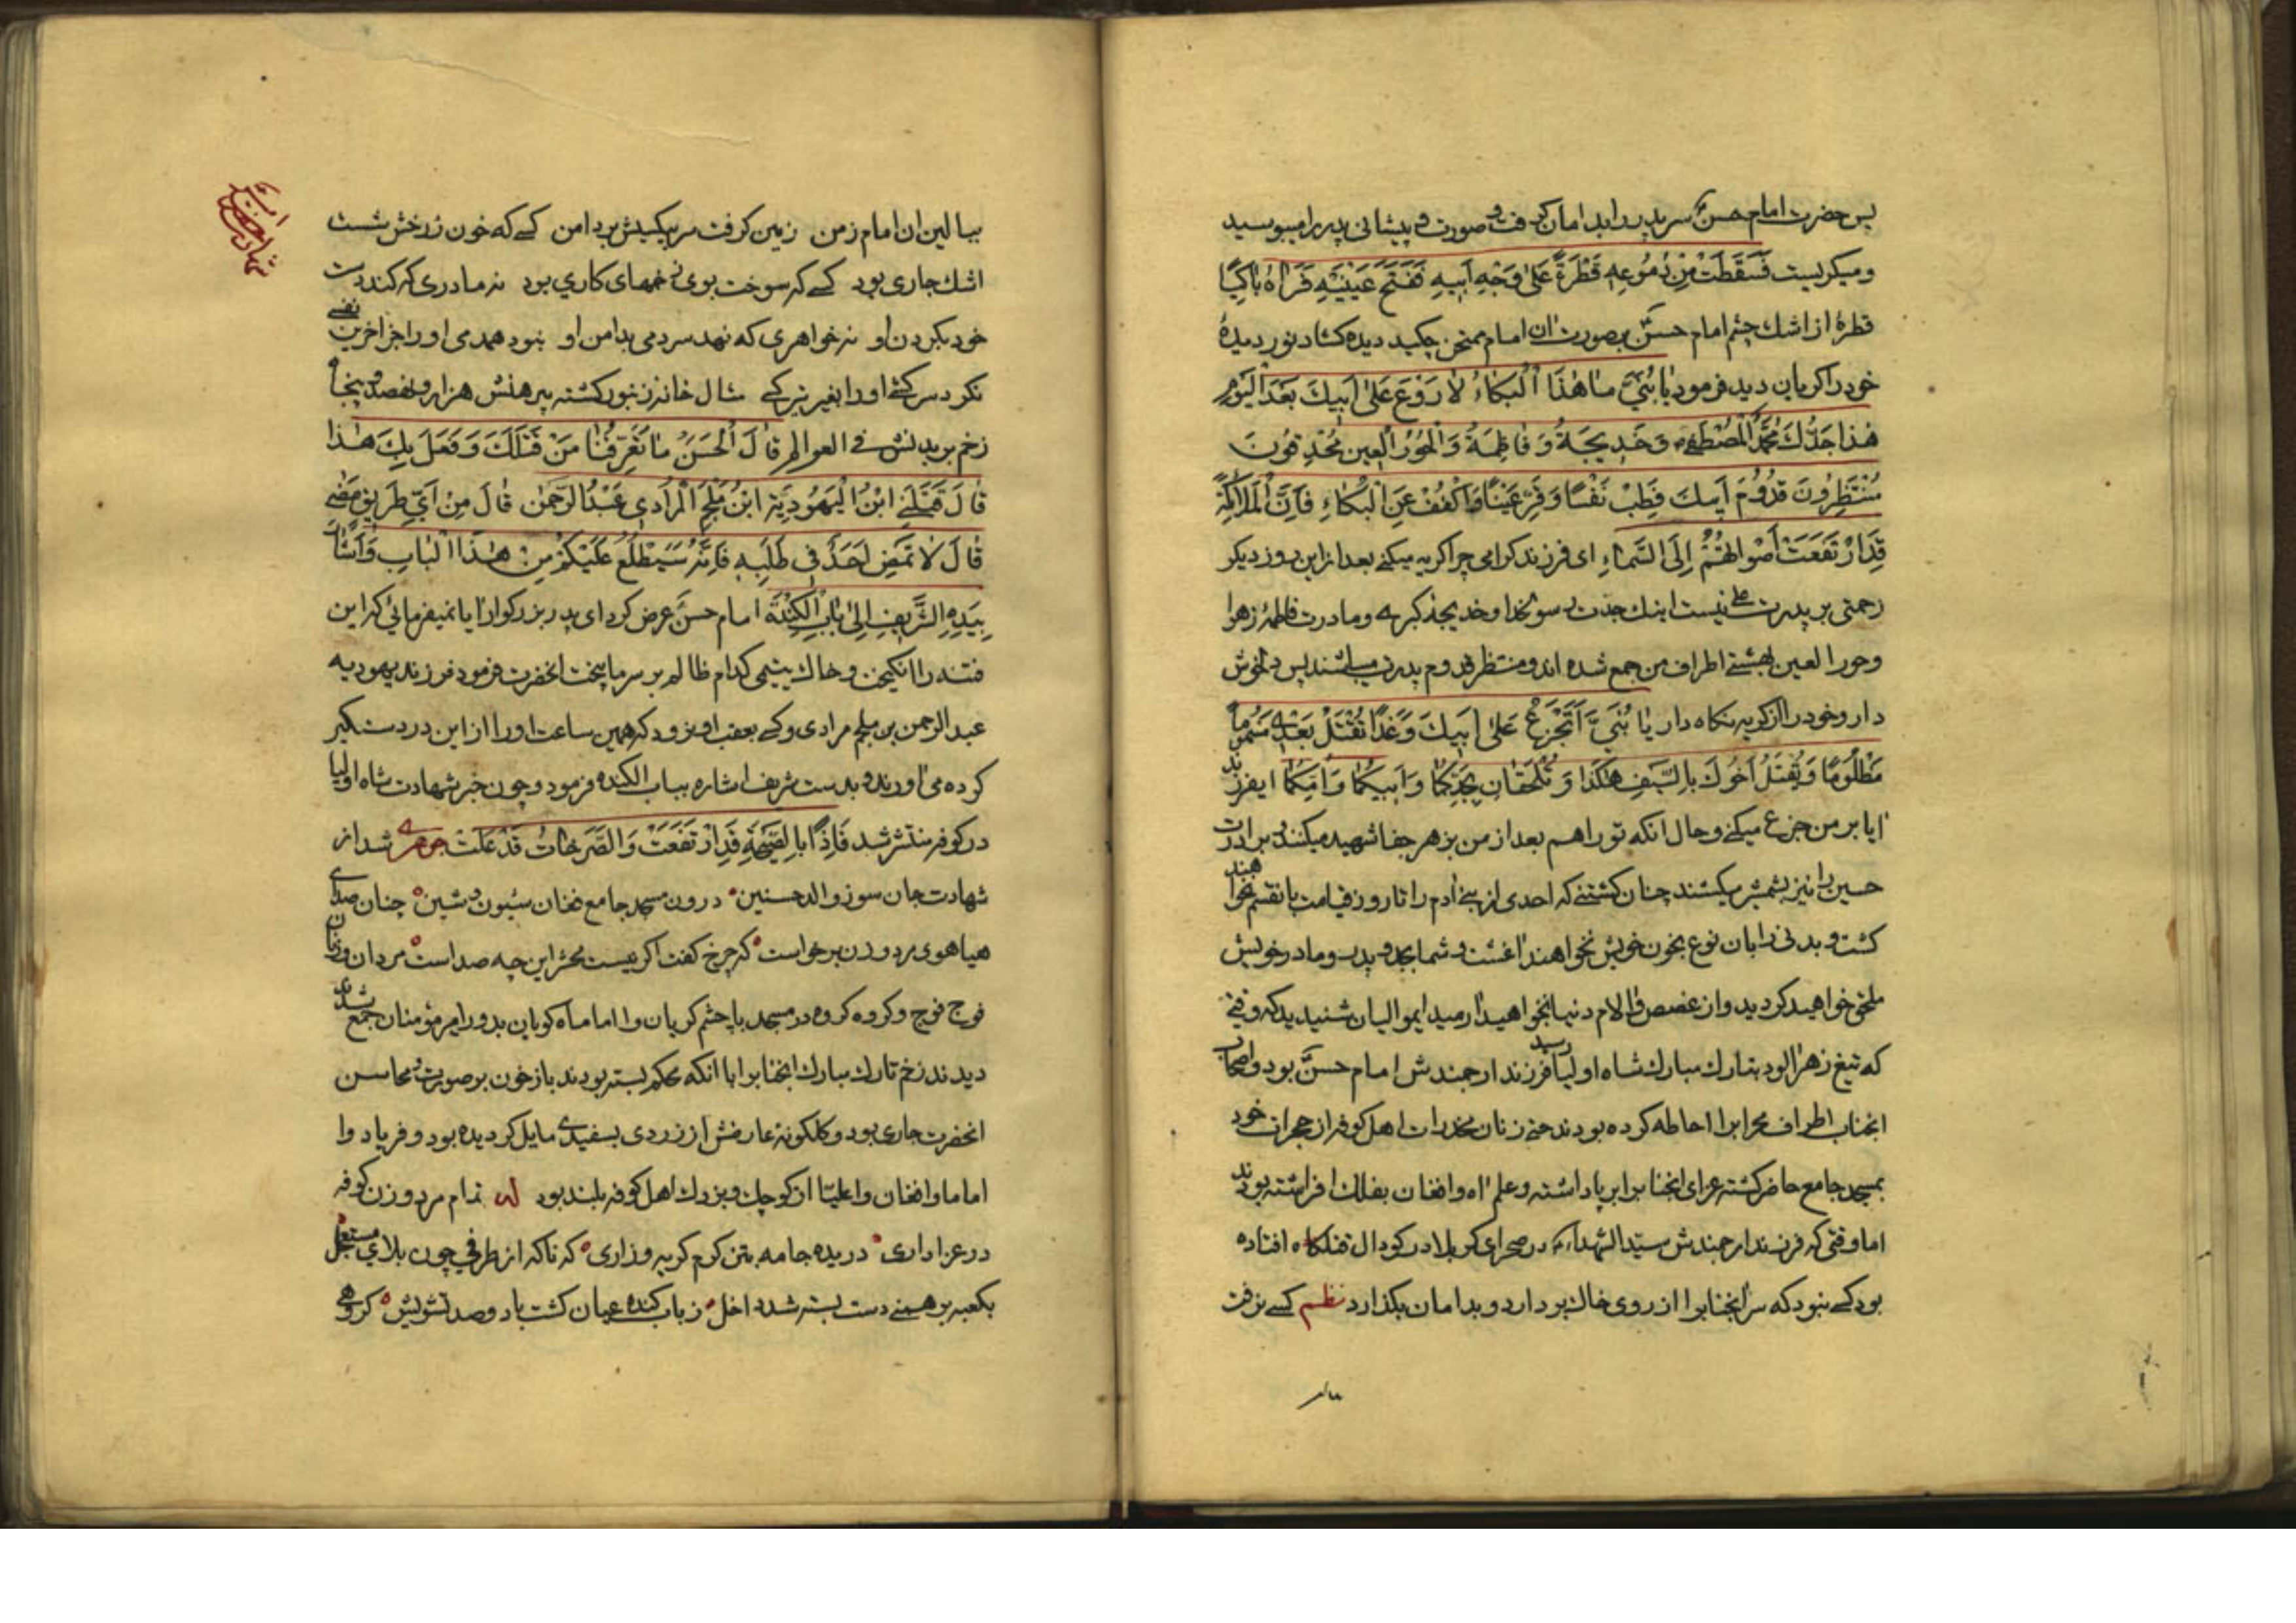 پس حضرت امام حسن ع سر پدر را بدامان گرفت و صورت و پیشانی پدر را میبوسید
و میکریست فَسَقَطَتْ مِنْ دُمُوعِهِ قَطْرَةٌ عَلىٰ وَجْهِ اَبیهِ فَفَتَحَ عَیْنَیْهِ فَرَاٰهُ بٰاکِیًا
قطرهٔ از اشك چشم امام حسن بصورت ان امام ممتحن چکید دیده کشاد نور دیدهٔ
خود را کریان دید فرمود یٰا بُنَیَّ مٰا هٰذَا الْبُکٰاءُ لاٰ رَوْعَ عَلىٰ اَبیكَ بَعْدَ الْیَوْمِ
هٰذا جَدُّكَ مُحَمَّدٌ الْمُصْطَفىٰ وَ خَدیجَةُ وَ فٰاطِمَةُ وَ الْحُورُ الْعینُ مُحْدِقُونَ
مُنْتَظِرُونَ قُدُومَ اَبیكَ فَطِبْ نَفْسًا وَ قَرِّ عَیْنًا وَ اکْفُفْ عَنِ الْبُکٰاءِ فَاِنَّ الْمَلاٰئِکَةَ
قَدِ ارْتَفَعَتْ اَصْوٰاتُهُمْ اِلَى السَّمٰاءِ ای فرزند کرامی چرا کریه میکنی بعد از این روز دیکر
زحمتی بر پدرت علی نیست اینك جدت رسولخدا و خدیجه کبری و مادرت فاطمه زهرا
و حور العین بهشتی اطراف من جمع شده اند و منتظر قدوم پدرت میباشند پس دلخوش
دار و خود را از کریه نکاه دار یٰا بُنَیَّ اَتَجْزَعُ عَلىٰ اَبیكَ وَ غَدًا تُقْتَلُ بَعْدی مَسْمُومًا
مَظْلُومًا وَ یُقْتَلُ اَخُوكَ بِالسَّیْفِ هٰکَذٰا وَ تُلْحَقٰانِ بِجَدِّکُمٰا وَ اَبیکُمٰا وَ اُمِّکُمٰا ایفرزند
ایا بر من جزع میکنی و حال انکه تو را هم بعد از من بزهر جفا شهید میکنند و برادرت
حسین را نیز بشمشیر میکشند چنان کشتنی که احدی از بنی ادم را تا روز قیامت بانقسم نخواهند
کشت و بدنی را بان نوع بخون خویش نخواهند اغشت و شما بجد و پدر و مادر خویش
ملحق خواهید کردید و از غصص و الام دنیا نخواهید ارمید ایموالیان شنیدید که وقتی
که تیغ زهر الود بتارك مبارك شاه اولیا رسید فرزند ارجمندش امام حسن بود و اصحاب
انجناب اطراف محرابرا احاطه کرده بودند حتی زنان مخدرات اهل کوفه از حجرات خود
بمسجد جامع حاضر کشته عزای انجنابرا برپا داشته و علم اه و افغان بفلك افراشته بودند
اما وقتی که فرزند ارجمندش سیّد الشهداء در صحرای کربلا در کودال قتلکاه افتاده
بود کسی نبود که سر انجنابرا از روی خاك بردارد و بدامان بکذارد نظم کسی نرفت
ببالین ان امام زمن زمین کرفت سر بیکسیش بر دامن کسی که خون ز رخش شست
اشك جاری بود کسی که سوخت بوی زخمهای کاری بود نه مادری که کند دست
خود بکردن او نه خواهری که نهد سر دمی بدامن او نبود همدمی او را جز اخرین نفسی
نکرد سرکشی او را بغیر تیر کسی مثال خانه زنبور کشته پیرهنش هزار و نهصد و پنجاه
زخم بر بدنش فی العوالم قٰالَ الْحَسَنُ مٰا تُعَرِّفُنٰا مَنْ قَتَلَكَ وَ فَعَلَ بِكَ هٰذٰا
قٰالَ قَتَلَنِی ابْنُ الْیَهُودِیَّةِ ابْنُ مُلْجَمِ الْمُرٰادی عَبْدُ الرَّحْمٰنِ قٰالَ مِنْ اَیِّ طَریقٍ مَضىٰ
قٰالَ لاٰ تَمْضِ اَحَدٌ فی طَلَبِهِ فَاِنَّهُ سَیَطْلُعُ عَلَیْکُمْ مِنْ هٰذَا الْبٰابِ وَ اَشٰارَ
بِیَدِهِ الشَّریفِ اِلىٰ بٰابِ الْکِنْدَةِ امام حسن عرض کرد ای پدر بزرکوار ایا نمیفرمائی که این
فتنه را انکیخت و خاك یتیمی کدام ظالم بر سر ما بیخت انحضرت فرمود فرزند یهودیه
عبد الرحمن بن ملجم مرادی و کسی بعقب او نرود که همین ساعت او را از این در دستکیر
کرده می اورند و بدست شریف اشاره بباب الکنده فرمود و چون خبر شهادت شاه اولیا
در کوفه منتشر شد فَاِذًا بِالصَّیْحَةِ قَدِ ارْتَفَعَتْ وَ الصَّرَخٰاتُ قَدْ عَلَتْ جوهری شد از
شهادت جان سوز والد حسنین درون مسجد جامع فغان شیون و شین چنان صدای
هیاهوی مرد و زن برخواست که چرخ کفت اکر نیست محشر این چه صداست مردان و زنان
فوج فوج و کروه کروه در مسجد با چشم کریان وا اماماه کویان بدور امیر مؤمنان جمع شدند
دیدند زخم تارك مبارك انجنابرا با انکه محکم بسته بودند باز خون بر صورت و محاسن
انحضرت جاری بود و کلکونه عارضش از زردی بسفیدی مایل کردیده بود و فریاد وا
اماما و افغان وا علیا از کوچك و بزرك اهل کوفه بلند بود له تمام مرد و زن کوفه
در عزاداری دریده جامه بتن کرم کریه و زاری که ناکه از طرفی چون بلای مستعجل
بکعبه برهمنی دست بسته شد داخل ز باب کنده عیان کشت با دو صد تشویش کروهی